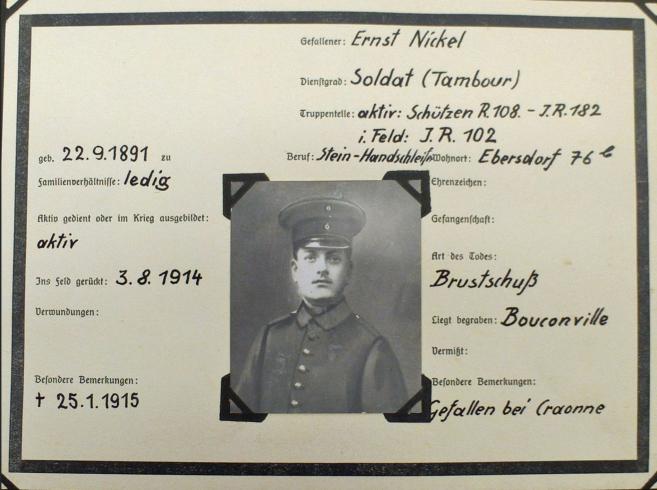 Gefallener: Ernst Nickel
Dienstgrad: Soldat (Tambour)
Truppenteile: aktiv: Schützen R. 108. - J.R. 182
i. Feld: J.R. 102
geb. 22.9.1891 zu
Beruf: Stein-Handschleifer Wohnort: Ebersdorf 76 b
Familienverhältnisse: ledig
Ehrenzeichen:
Aktiv gedient oder im Krieg ausgebildet:
aktiv
Gefangenschaft:
Art des Todes:
Brustschuß
Ins Feld gerückt: 3.8.1914
Verwundungen:
Liegt begraben: Bouconville
Vermißt:
Besondere Bemerkungen:
† 25.1.1915
Besondere Bemerkungen:
Gefallen bei Craonne